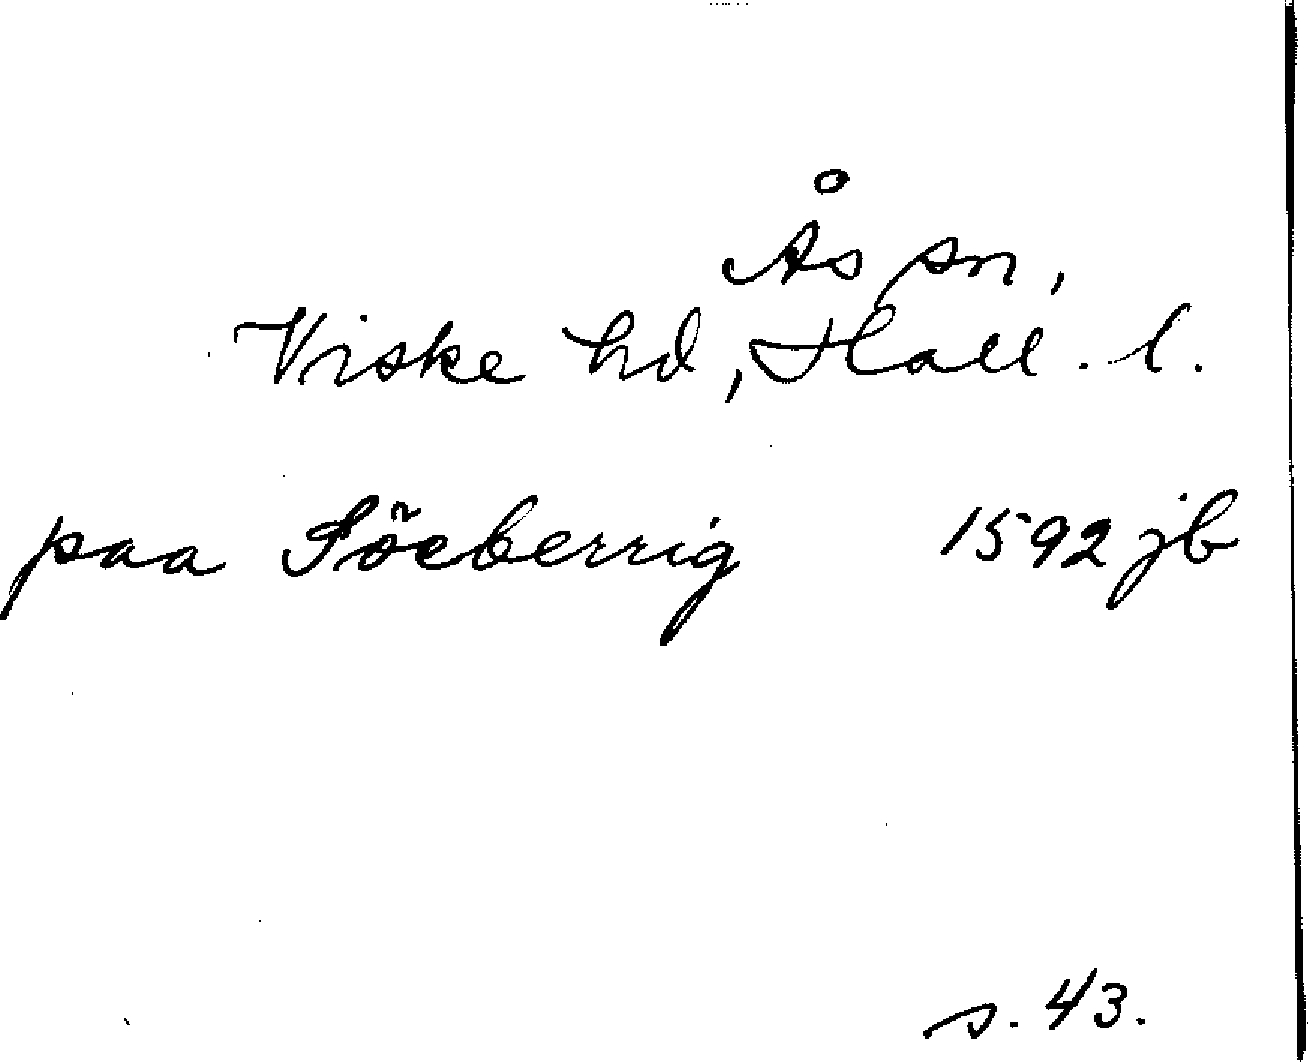 Ås sn,
Viske hd, Hall. l.
paa Söeberrig 1592 jb
s. 43.